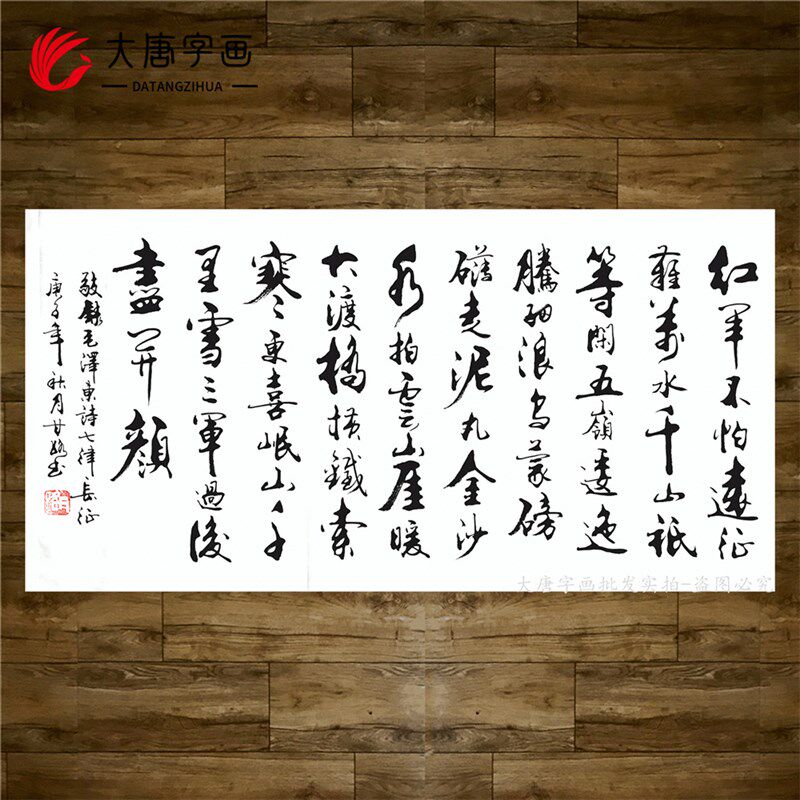 大唐字画
DATANGZIHUA
紅軍不怕遠征
難萬水千山祇
等閑五嶺逶迤
騰細浪烏蒙磅
礴走泥丸金沙
水拍雲崖暖
大渡橋横鐵索
寒更喜岷山千
里雪三軍過後
盡開顏
敬錄毛澤東詩七律長征
庚子年秋月甘書
大唐字画批发实拍-盗图必究